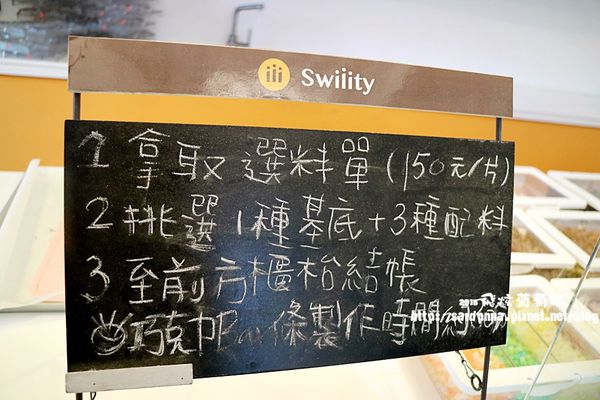 Swility
1 拿取選料單(150元/片)
2 挑選1種基底+3種配料
3 至前方櫃枱結帳
巧克 條製作時間約
2018
https://sardonna.pixnet.net/blog